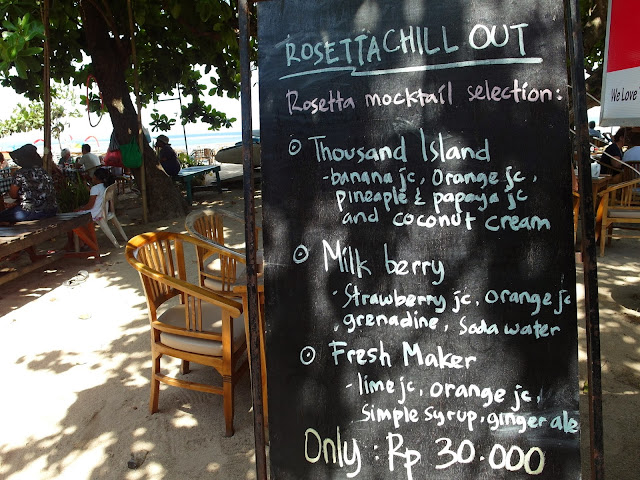 ROSETTA CHILL OUT
Rosetta mocktail selection:
Thousand Island
- banana jc, orange jc,
pineapple & papaya jc
and coconut cream
Milk berry
- Strawberry jc, orange jc
, grenadine, Soda water
Fresh Maker
- lime jc, orange jc,
simple syrup, ginger ale
Only : Rp 30.000
We Love